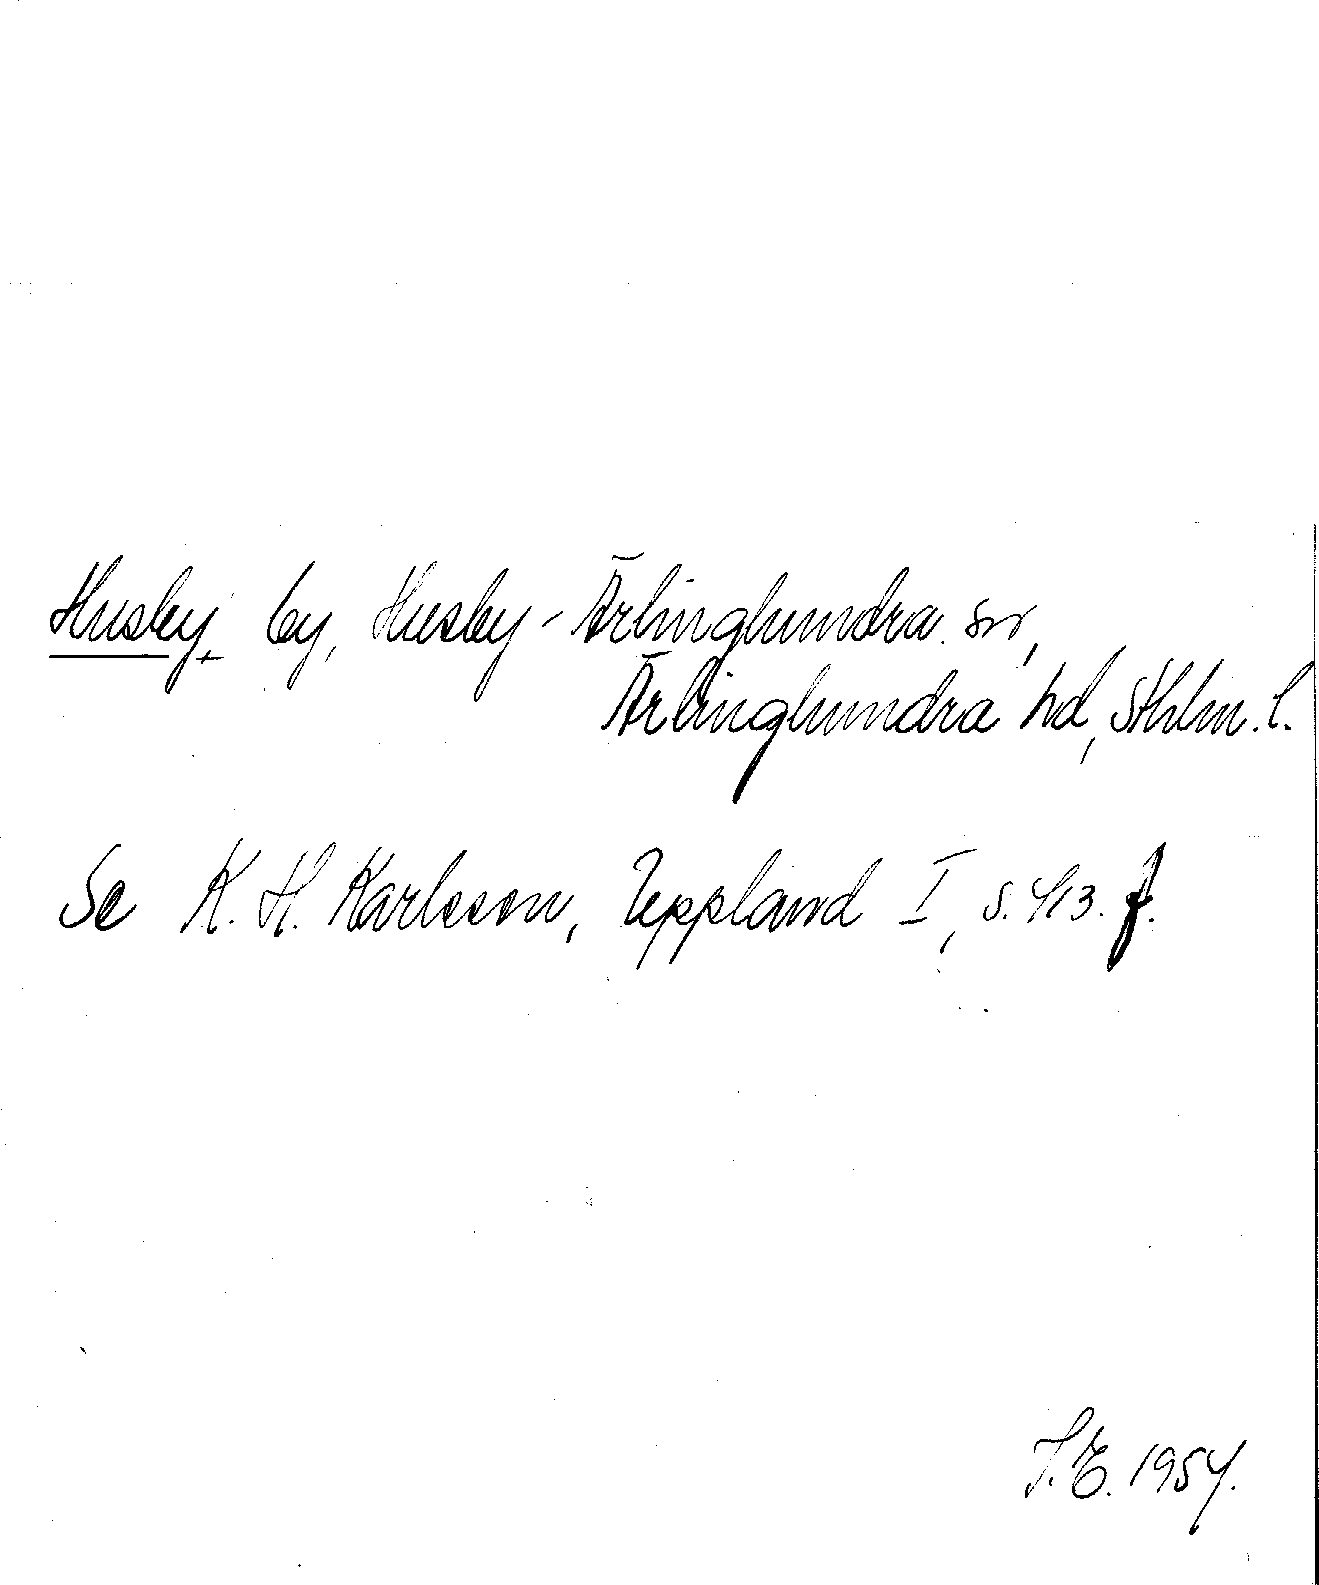 Husby, by, Husby-Ärlinghundra sn,
Ärlinghundra hd, Sthlm. l.
Se K. H. Karlsson, Uppland I, s. 413 f.
1954.